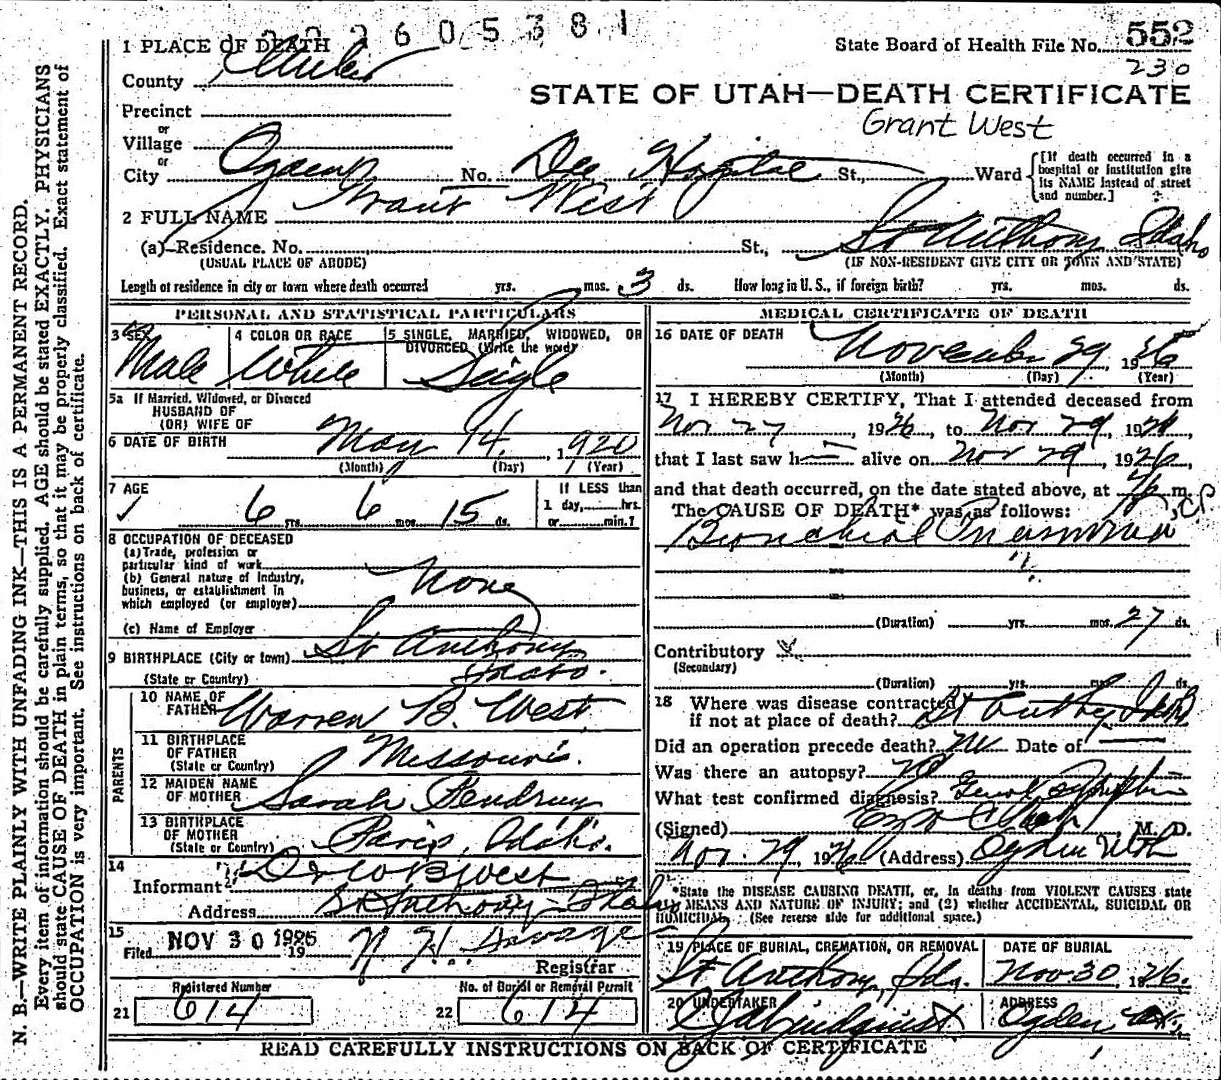 2 2 2 6 0 5 3 8 1
State Board of Health File No. 552
230
STATE OF UTAH—DEATH CERTIFICATE
Grant West
1 PLACE OF DEATH
County Weber
Precinct
or
Village
or
City Ogden No. Dee Hospital St., Ward
[If death occurred in a hospital or institution give its NAME instead of street and number.]
2 FULL NAME Grant West
(a) Residence. No. St., St Anthony Idaho
(USUAL PLACE OF ABODE) (IF NON-RESIDENT GIVE CITY OR TOWN AND STATE)
Length of residence in city or town where death occurred yrs. mos. 3 ds. How long in U. S., if foreign birth? yrs. mos. ds.
PERSONAL AND STATISTICAL PARTICULARS
3 SEX Male
4 COLOR OR RACE White
5 SINGLE, MARRIED, WIDOWED, OR DIVORCED (Write the word) Single
5a If Married, Widowed, or Divorced
HUSBAND OF
(OR) WIFE OF
6 DATE OF BIRTH May 14, 1920
(Month) (Day) (Year)
7 AGE 6 yrs. 6 mos. 15 ds.
If LESS than
1 day, hrs.
or min.?
8 OCCUPATION OF DECEASED
(a) Trade, profession or
particular kind of work None
(b) General nature of Industry,
business, or establishment in
which employed (or employer)
(c) Name of Employer
9 BIRTHPLACE (City or town) St Anthony
(State or Country) Idaho.
PARENTS
10 NAME OF FATHER Warren B. West
11 BIRTHPLACE
OF FATHER
(State or Country) Missouri.
12 MAIDEN NAME
OF MOTHER Sarah
13 BIRTHPLACE
OF MOTHER
(State or Country) Paris, Idaho.
14
Informant B West
Address St Anthony - Idaho
15
Filed NOV 30 1926 19
Registrar
Registered Number
21 614
No. of Burial or Removal Permit
22 614
MEDICAL CERTIFICATE OF DEATH
16 DATE OF DEATH November 29, 1926
(Month) (Day) (Year)
17 I HEREBY CERTIFY, That I attended deceased from
Nov 27, 1926, to Nov 29, 1926,
that I last saw h alive on Nov 29, 1926,
and that death occurred, on the date stated above, at m.
The CAUSE OF DEATH* was as follows:
Bronchial Pneumonia
(Duration) yrs. mos. 27 ds.
Contributory
(Secondary)
(Duration) yrs. mos. ds.
18 Where was disease contracted
if not at place of death? St Anthony Idaho
Did an operation precede death? No Date of
Was there an autopsy? No
What test confirmed diagnosis?
(Signed) M. D.
Nov. 29, 1926 (Address) Ogden Utah
*State the DISEASE CAUSING DEATH, or, in deaths from VIOLENT CAUSES state
MEANS AND NATURE OF INJURY; and (2) whether ACCIDENTAL, SUICIDAL OR
HOMICIDAL. (See reverse side for additional space.)
19 PLACE OF BURIAL, CREMATION, OR REMOVAL
St Anthony, Ida.
DATE OF BURIAL
Nov 30, 1926.
20 UNDERTAKER
Lindquist
ADDRESS
Ogden
READ CAREFULLY INSTRUCTIONS ON BACK OF CERTIFICATE
N. B.—WRITE PLAINLY WITH UNFADING INK—THIS IS A PERMANENT RECORD.
Every item of information should be carefully supplied. AGE should be stated EXACTLY. PHYSICIANS
should state CAUSE OF DEATH in plain terms, so that it may be properly classified. Exact statement of
OCCUPATION is very important. See instructions on back of certificate.